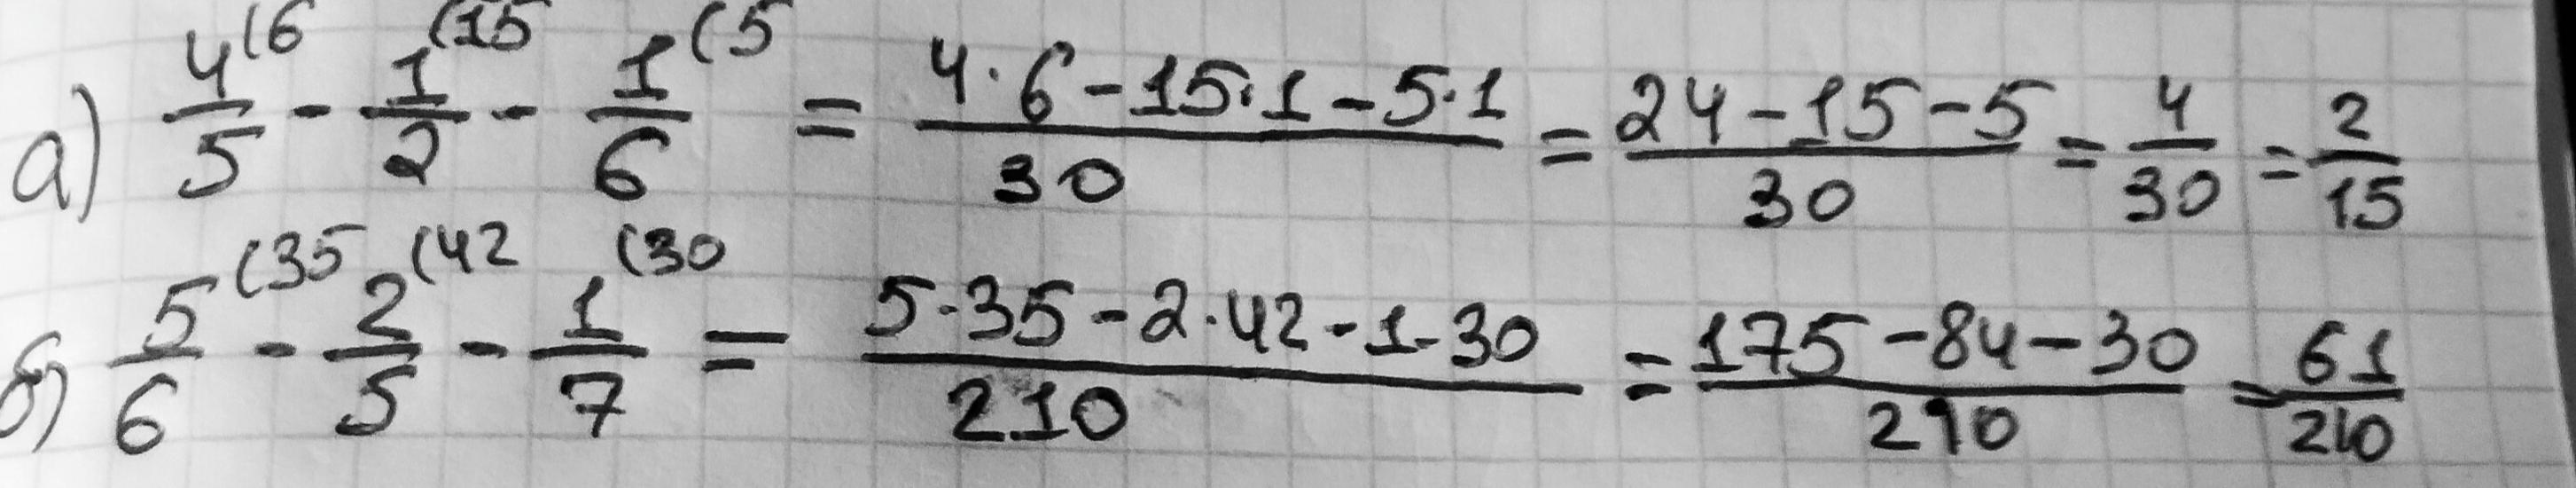 а) 4/5 (6 - 1/2 (15 - 1/6 (5 = 4·6-15·1-5·1/30 = 24-15-5/30 = 4/30 = 2/15
б) 5/6 (35 - 2/5 (42 - 1/7 (30 = 5·35-2·42-1·30/210 = 175-84-30/210 = 61/210